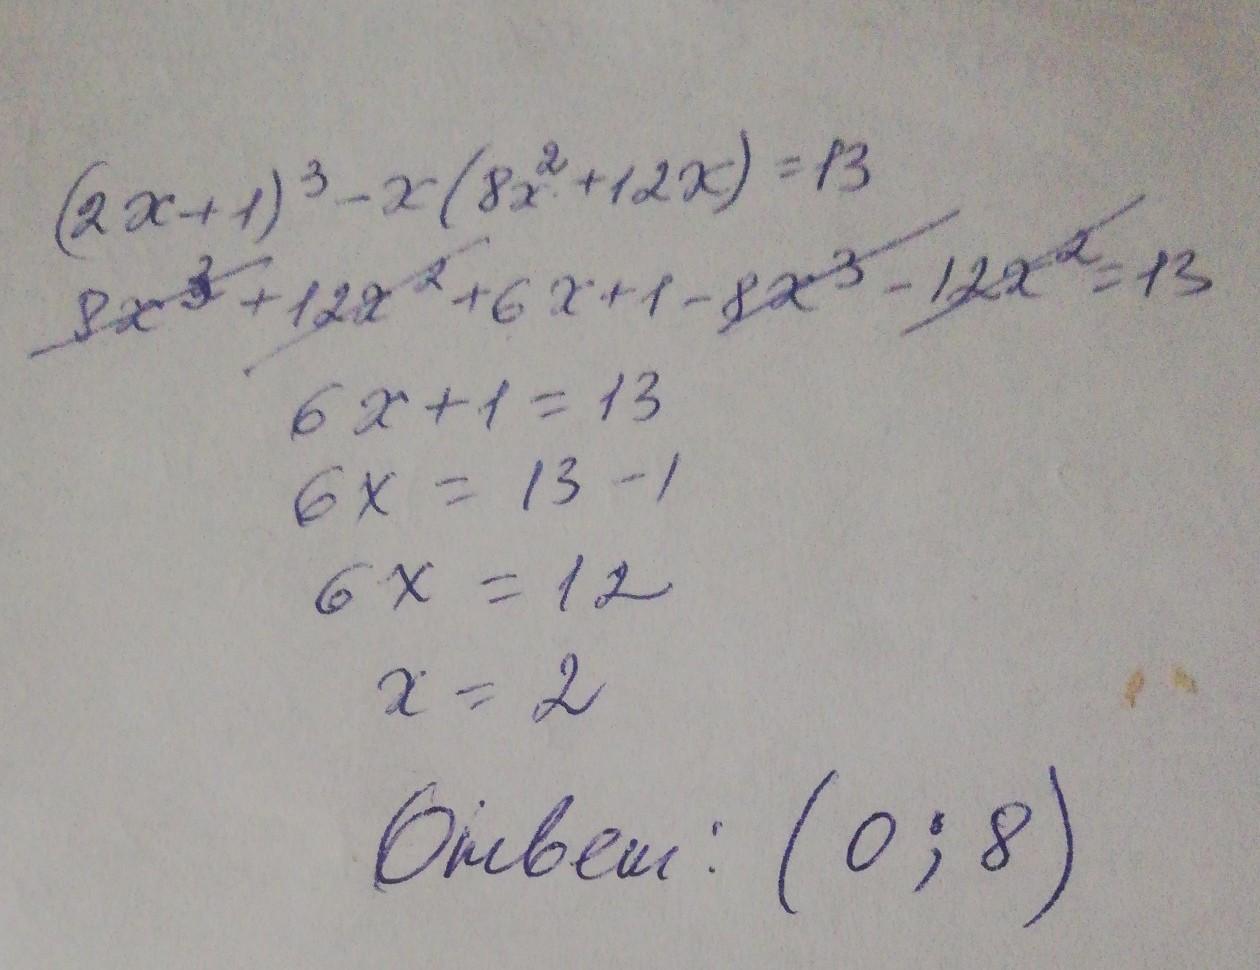 (2x+1)³-x(8x²+12x)=13
8x³+12x²+6x+1-8x³-12x²=13
6x+1=13
6x=13-1
6x=12
x=2
Ответ: (0;8)